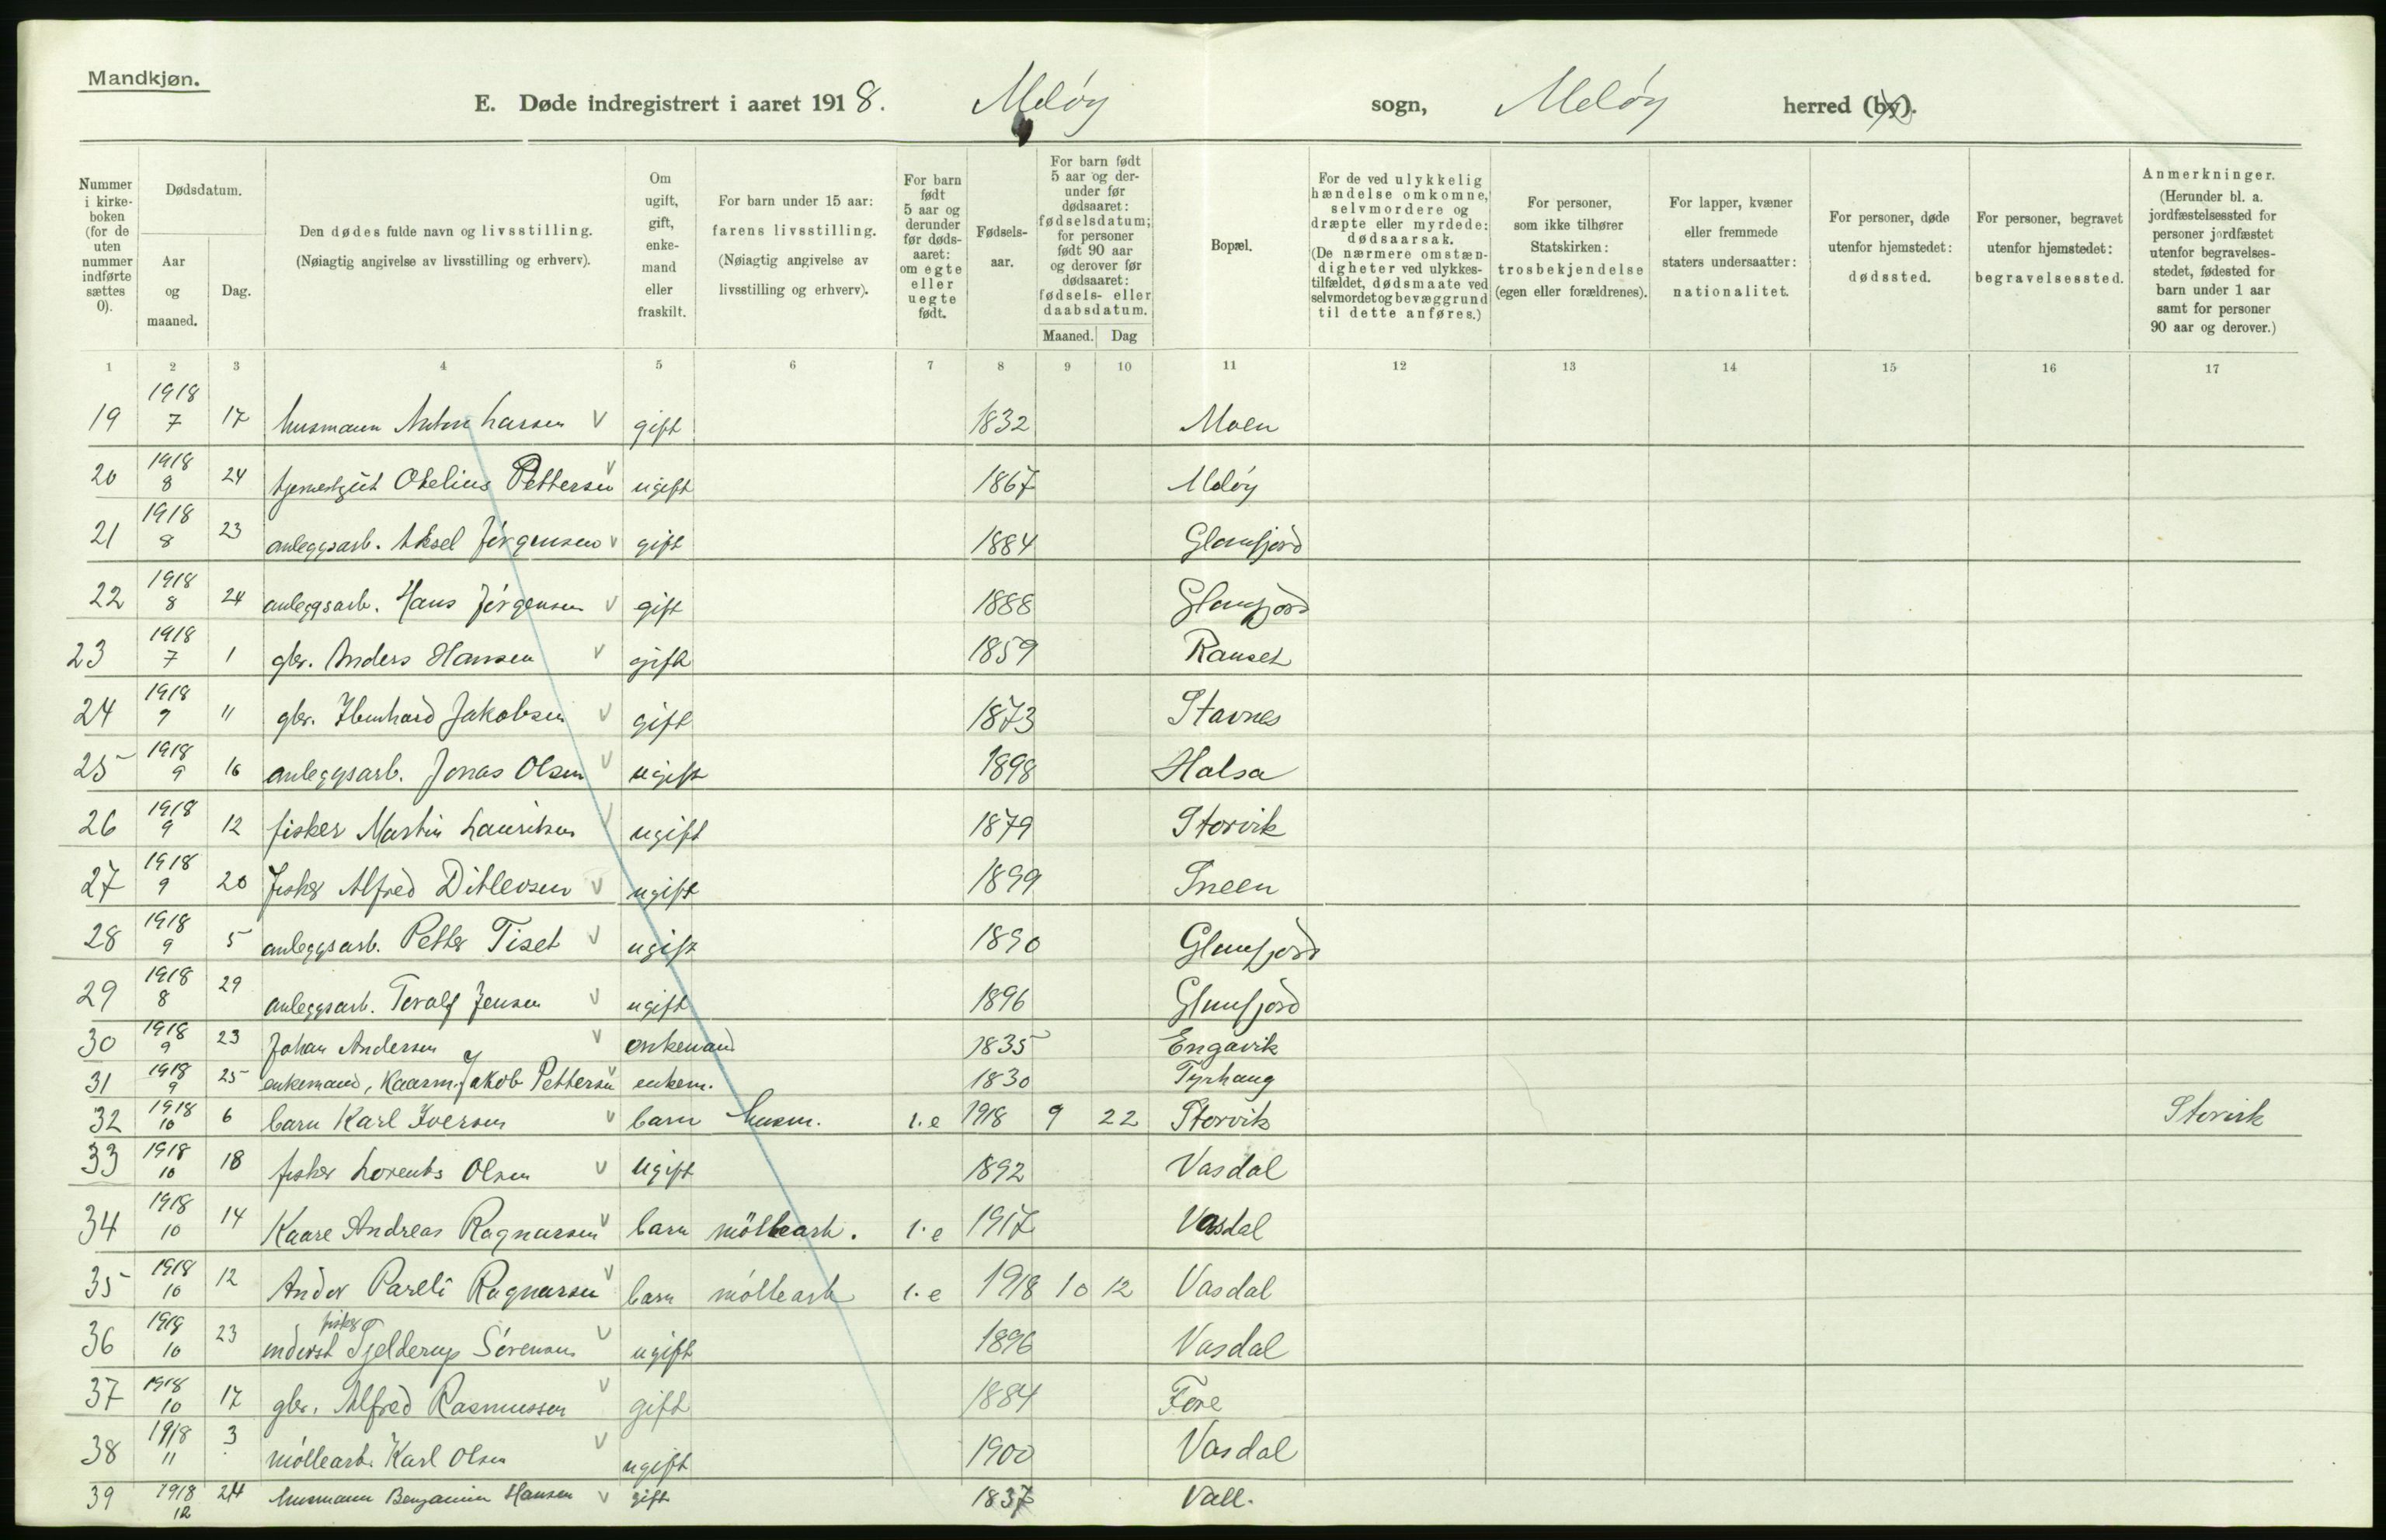 Mandkjøn.
E. Døde indregistrert i aaret 1918. Meløy sogn, Meløy herred (by).
Nummer i kirkeboken (for de uten nummer indførte sættes 0).
Dødsdatum.
Aar og maaned.
Dag.
Den dødes fulde navn og livsstilling.
(Nøiagtig angivelse av livsstilling og erhverv).
Om ugift, gift, enkemand eller fraskilt.
For barn under 15 aar: farens livsstilling.
(Nøiagtig angivelse av livsstilling og erhverv).
For barn født 5 aar og derunder før dødsaaret: om egte eller uegte født.
Fødselsaar.
For barn født 5 aar og derunder før dødsaaret: fødselsdatum; for personer født 90 aar og derover før dødsaaret: fødsels- eller daabsdatum.
Maaned. Dag
Bopæl.
For de ved ulykkelig hændelse omkomne, selvmordere og dræpte eller myrdede: dødsaarsak.
(De nærmere omstændigheter ved ulykkestilfældet, dødsmaate ved selvmordet og bevæggrund til dette anføres.)
For personer, som ikke tilhører Statskirken: trosbekjendelse (egen eller forældrenes).
For lapper, kvæner eller fremmede staters undersaatter: nationalitet.
For personer, døde utenfor hjemstedet: dødssted.
For personer, begravet utenfor hjemstedet: begravelsessted.
Anmerkninger.
(Herunder bl. a. jordfæstelsessted for personer jordfæstet utenfor begravelsesstedet, fødested for barn under 1 aar samt for personer 90 aar og derover.)
1 2 3 4 5 6 7 8 9 10 11 12 13 14 15 16 17
19 1918 7 17 husmann Anton Larsen V gift 1832 Moen
20 1918 8 24 tjenestgut Otelius Pettersen V ugift 1867 Meløy
21 1918 8 23 anleggsarb. Aksel Jørgensen V gift 1884 Glomfjord
22 1918 8 24 anleggsarb. Hans Jørgensen V gift 1888 Glomfjord
23 1918 7 1 gbr. Anders Hansen V gift 1859 Ranset
24 1918 9 11 gbr. Jakobsen V gift 1873 Stavnes
25 1918 9 16 anleggsarb. Jonas Olsen V ugift 1898 Halsa
26 1918 9 12 fisker Martin Lauritsen V ugift 1879 Storvik
27 1918 9 20 fisker Alfred Ditlevsen V ugift 1899 Sneen
28 1918 9 5 anleggsarb. Petter Tiset V ugift 1890 Glomfjord
29 1918 8 29 anleggsarb. Toralf Jensen V ugift 1896 Glomfjord
30 1918 9 23 Johan Andersen V enkemand 1835 Engavik
31 1918 9 25 enkemand, Kaarm. Jakob Pettersen V enkem. 1830 Tyrhaug
32 1918 10 6 barn Karl Iversen V barn husm. 1. e 1918 9 22 Storvik Storvik
33 1918 10 18 fisker Lorents Olsen V ugift 1892 Vasdal
34 1918 10 14 Kaare Andreas Ragnarsen V barn möllearb. 1. e 1917 Vasdal
35 1918 10 12 Andor Pareli Ragnarsen V barn möllearb 1. e 1918 10 12 Vasdal
36 1918 10 23 inderst fisker Tjelderup Sørensen V ugift 1896 Vasdal
37 1918 10 17 gbr. Alfred Rasmussen V gift 1884 Fore
38 1918 11 3 møllearb. Karl Olsen V ugift 1900 Vasdal
39 1918 12 24 husmann Benjamin Hansen V gift 1837 Vall.